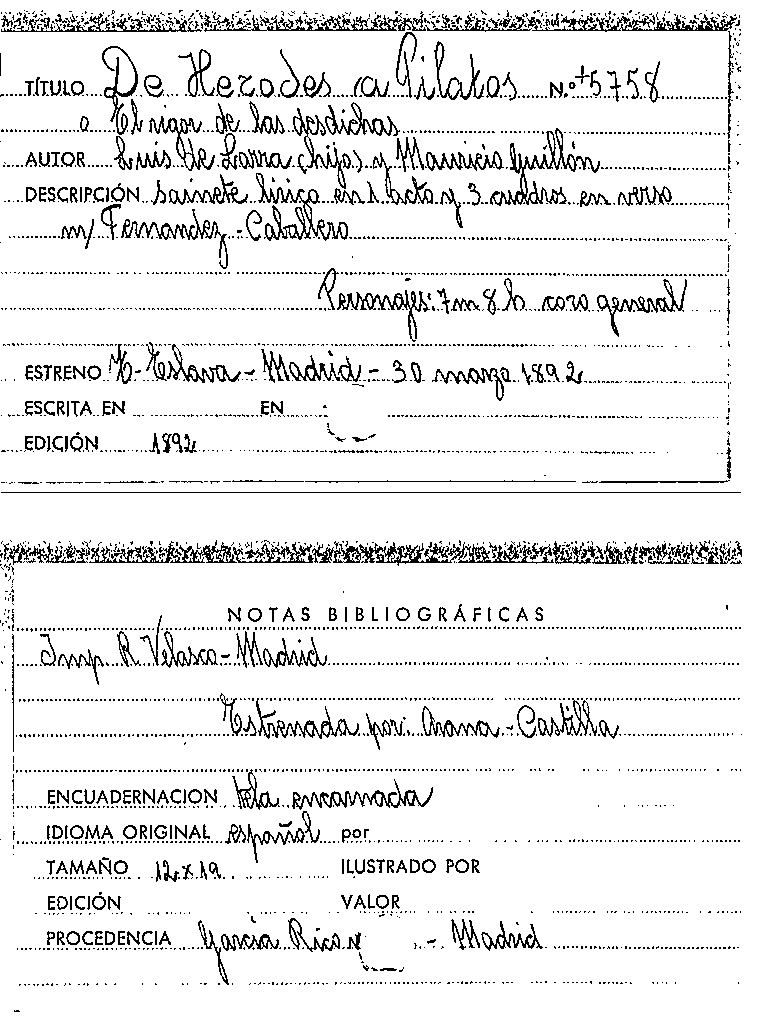 TÍTULO De Herodes a Pilatos N.º +5758
o El rigor de las desdichas
AUTOR Luis de Larra (hijo) y Mauricio Gullón
DESCRIPCIÓN Sainete lírico en 1 acto y 3 cuadros en verso
m/ Fernandez-Caballero
Personajes: 7 m 8 h coro general
ESTRENO T- Eslava - Madrid - 30 marzo 1892
ESCRITA EN EN
EDICIÓN 1892
NOTAS BIBLIOGRÁFICAS
Imp. R Velasco - Madrid
Estrenada por: Arana - Castilla
ENCUADERNACION tela encarnada
IDIOMA ORIGINAL español por
TAMAÑO 12 x 19 ILUSTRADO POR
EDICIÓN VALOR
PROCEDENCIA García Rico y - Madrid